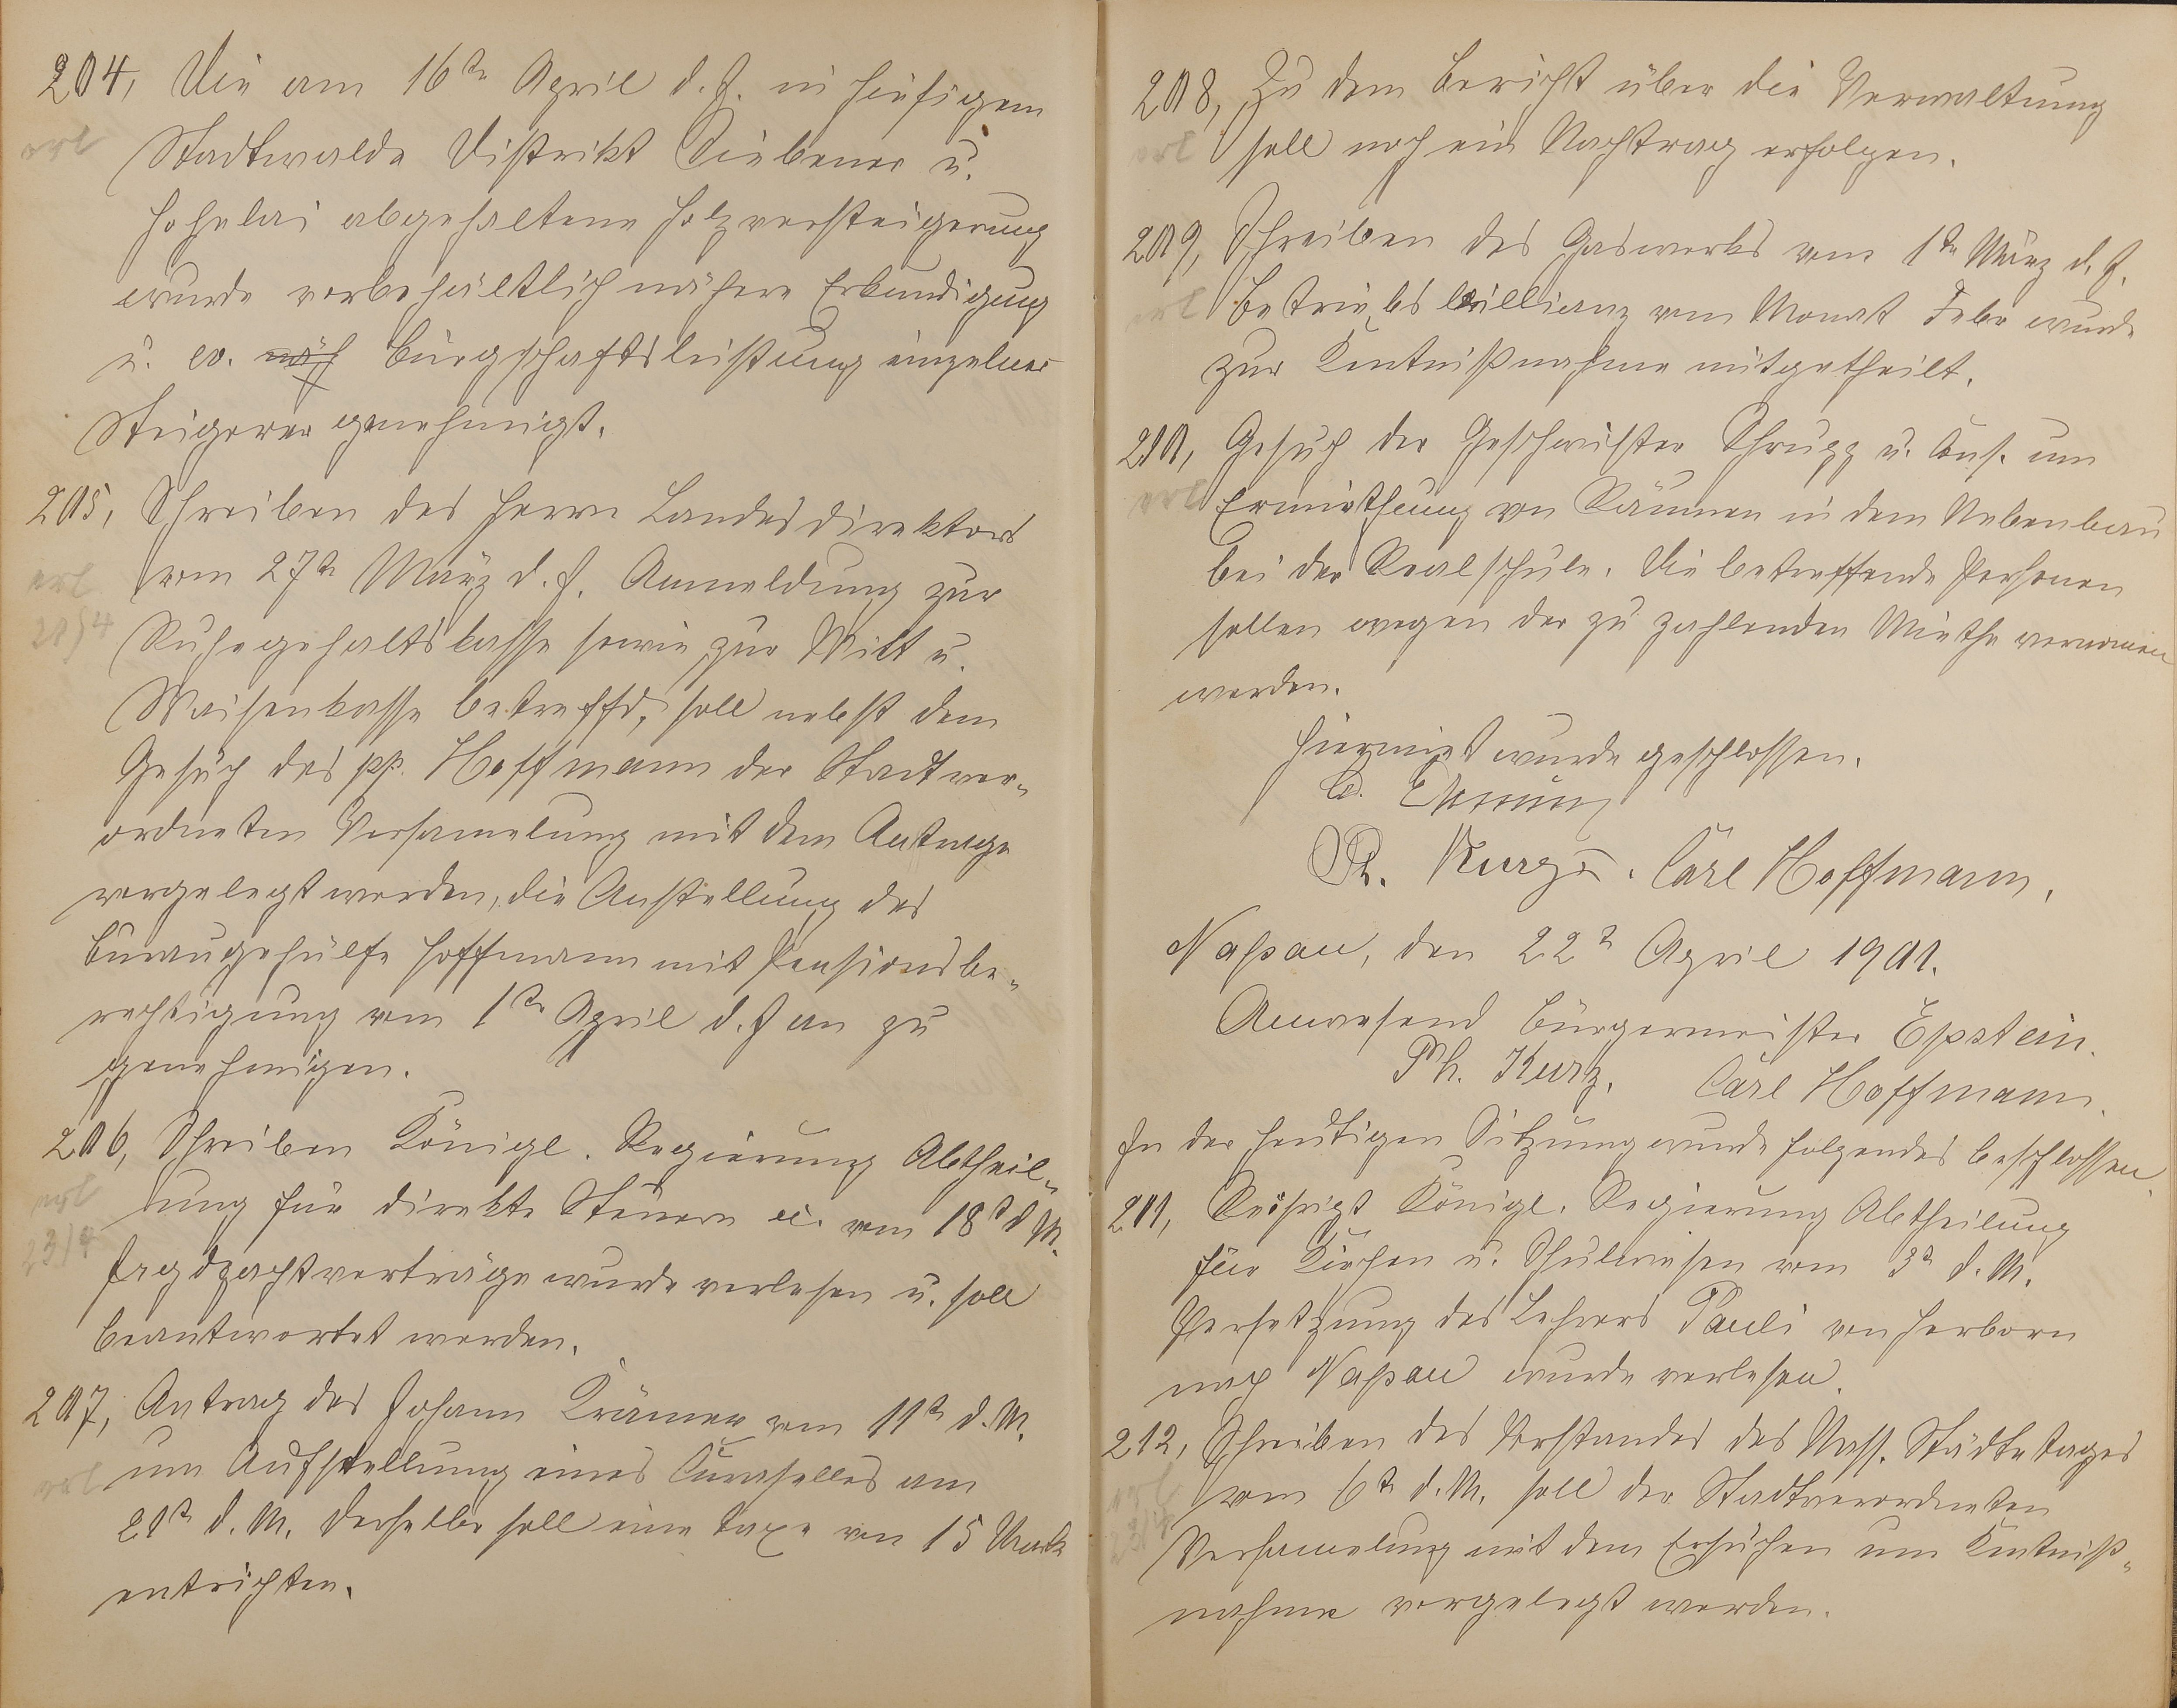 204, Die am 16tn April d. J. in hiesigem
erl
Stadtwalde Distrikt Siebener u.
Hohelai abgehaltene Holzversteigerung
wurde vorbehältlich nähere Erkundigung
u. ev. näh Bürgschaftsleistung einzelner
Steigerer genehmigt.
205, Schreiben des Herrn Landesdirektors
erl vom 27tn März d. J. Anmeldung zur
21/4 Ruhegehaltskasse sowie zur Witt u.
Waisenkasse betreffd, soll nebst dem
Gesuch des pp. Hoffmann der Stadtver-
ordneten Versamelung mit dem Antrage
vorgelegt werden, die Anstellung des
Büraugehülfe Hoffmann mit Pensionsbe-
rechtigung vom 1tn April d. J an zu
genehmigen.
206, Schreiben Königl. Regierung Abtheil-
erl ung für direkte Steuern ec. vom 18t d M.
23/4 Jagdpachtverträge wurde verlesen u. soll
beantwortet werden.
207, Antrag des Johann Krämer vom 11tn d. M.
erl um Aufstellung eines Karuselles am
21tn d. M. Derselbe soll eine Taxe von 15 Mark
entrichten.
208, Zu dem Bericht über die Verwaltung
erl soll noch ein Nachtrag erfolgen.
209, Schreiben des Gaswerks vom 1tn März d. J.
erl Betriebsbillianz vom Monat Febr wurde
zur Kentnißnahme mitgetheilt.
210, Gesuch der Geschwister Schrupp u. Cons. um
erl Ermiethung von Räumen in dem Nebenbau
bei der Realschule. Die betreffende Personen
sollen wegen der zu zahlenden Miethe vernomen
werden.
Hiermit wurde geschlossen.
Ph. Kurz. Carl Hoffmann.
Naßau, den 22t April 1901.
Anwesend Bürgermeister Epstein.
Ph. Kurz, Carl Hoffmann.
In der heutigen Sitzung wurde folgendes beschlossen.
211, Königl. Regierung Abtheilung
für Kirchen u. Schulwesen vom 3t d. M.
Versetzung des Lehrers Pauli von Herborn
nach Naßau wurde verlesen.
212, Schreiben des Vorstandes des Nass. Städtetages
erl vom 6tn d. M. soll der Stadtverordneten
23/4 Versamelung mit dem Ersuchen um Kentniß-
nahme vorgelegt werden.